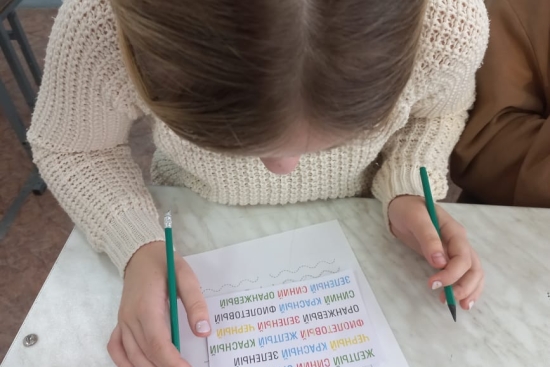 ЖЕЛТЫЙ КРАСНЫЙ
ЧЕРНЫЙ КРАСНЫЙ СИНИЙ ЗЕЛЕНЫЙ
ФИОЛЕТОВЫЙ ЖЕЛТЫЙ КРАСНЫЙ
ОРАНЖЕВЫЙ ЗЕЛЕНЫЙ ЧЕРНЫЙ
СИНИЙ КРАСНЫЙ ФИОЛЕТОВЫЙ
ЗЕЛЕНЫЙ СИНИЙ ОРАНЖЕВЫЙ